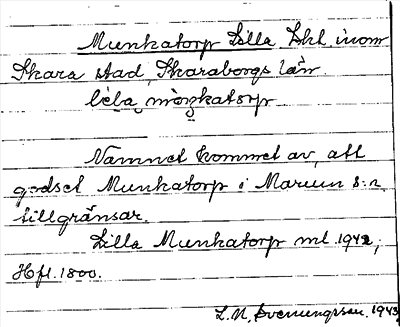 Munkatorp Lilla Lht. inom
Skara stad, Skaraborgs län.
lìla mòŋkatɔrp
Namnet kommet av, att
godset Munkatorp i Marum s:n
tillgränsar.
Lilla Munkatorp ml. 1942;
Hfl. 1800.
L. N. Svenungsson. 1943